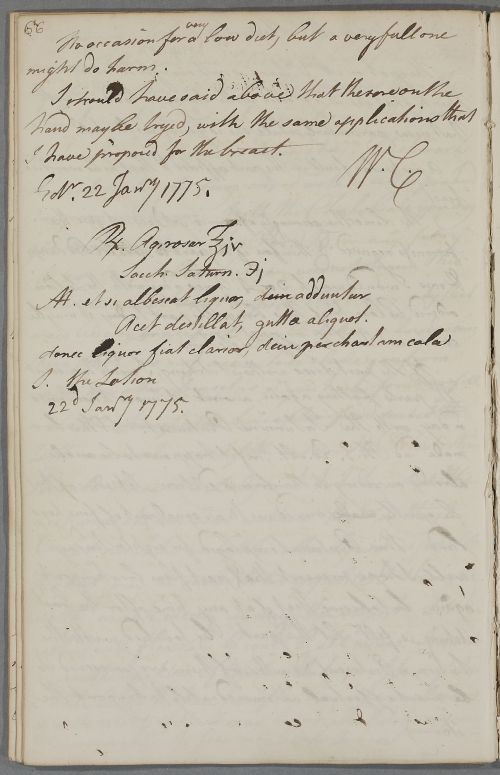 66
No occasion for a very low diet, but a very full one
might do harm.
I should have said above that the sore on the
hand may be tryed, with the same applications that
I have propos'd for the breast.
W. C.
Edr. 22 Janry 1775.
℞. Aq. rosar ℥iv
Sacch. Saturn. ℈j
M. et si albescat liquor, dein addantur
Acet destillat, guttæ aliquot.
donec liquor fiat clarior, dein per chartam cola
S. the Lotion
22d Janry 1775.